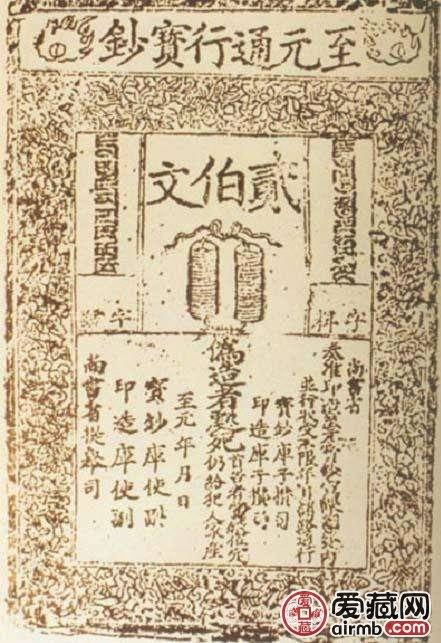 至元通行寶鈔
貳伯文
字料
字號
尚書省
奏准印造至元寶鈔宣課差役內
並行收受不限年月諸路通行
寶鈔庫子攢司
印造庫子攢司
偽造者處死首告者賞銀伍定
仍給犯人家產
至元年月日
寶鈔庫使副
印造庫使副
尚書省提舉司
爱藏网
airmb.com